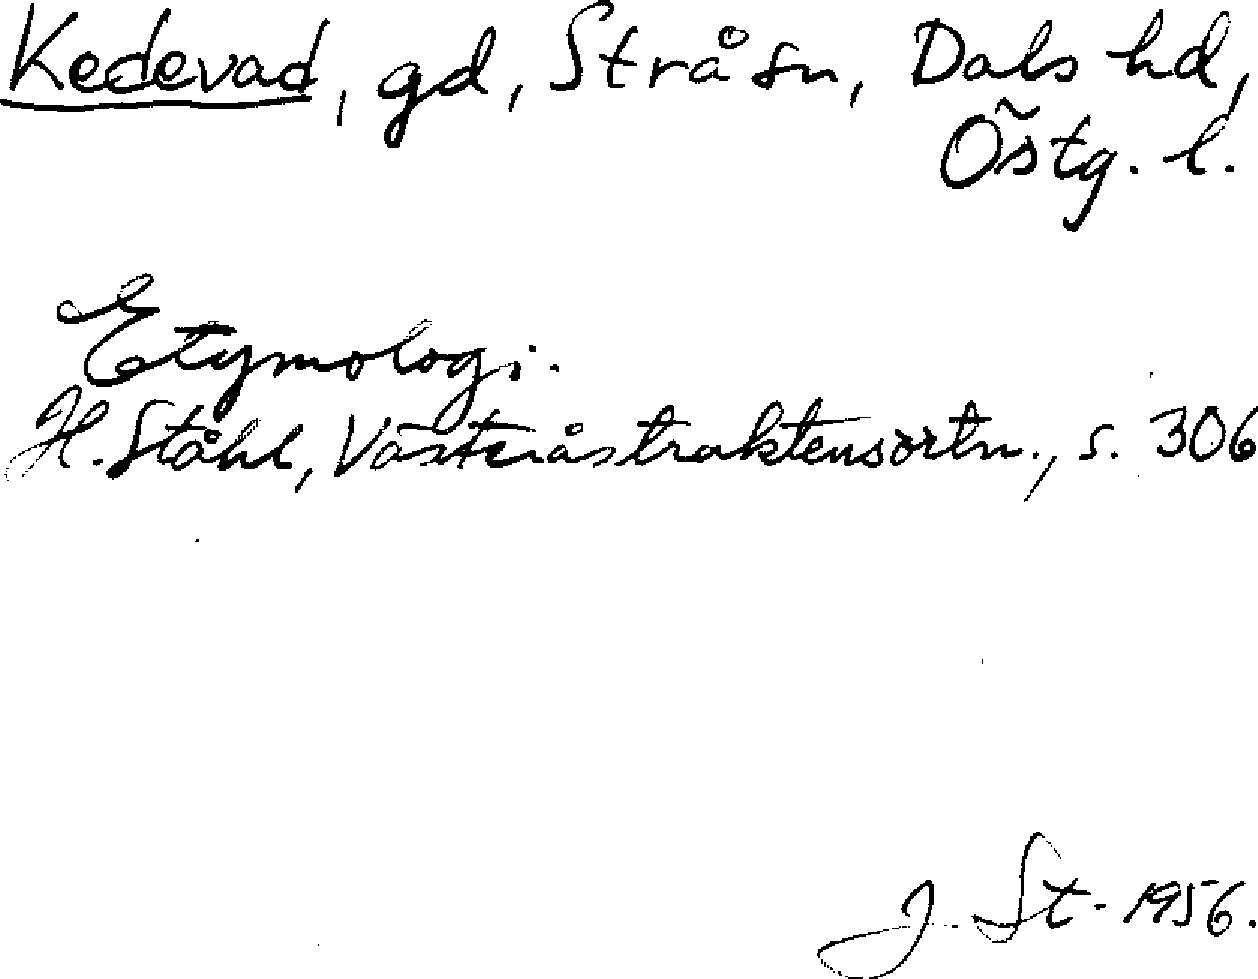 Kedevad, gd, Strå sn, Dals hd,
Östg. l.
Etymologi.
H. Ståhl, Västeråstraktens ortn., s. 306
J. St. 1956.